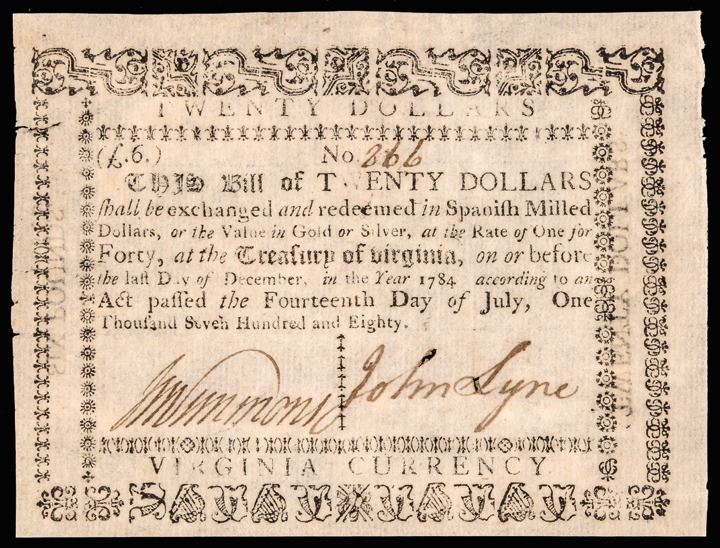 TWENTY DOLLARS
(£.6.) No. 266
THIS Bill of TWENTY DOLLARS
ſhall be exchanged and redeemed in Spaniſh Milled
Dollars, or the Value in Gold or Silver, at the Rate of One for
Forty, at the Treaſury of Virginia, on or before
the laſt Day of December, in the Year 1784 according to an
Act paſſed the Fourteenth Day of July, One
Thouſand Seven Hundred and Eighty.
John Lyne
VIRGINIA CURRENCY
SIX POUNDS
TWENTY DOLLARS